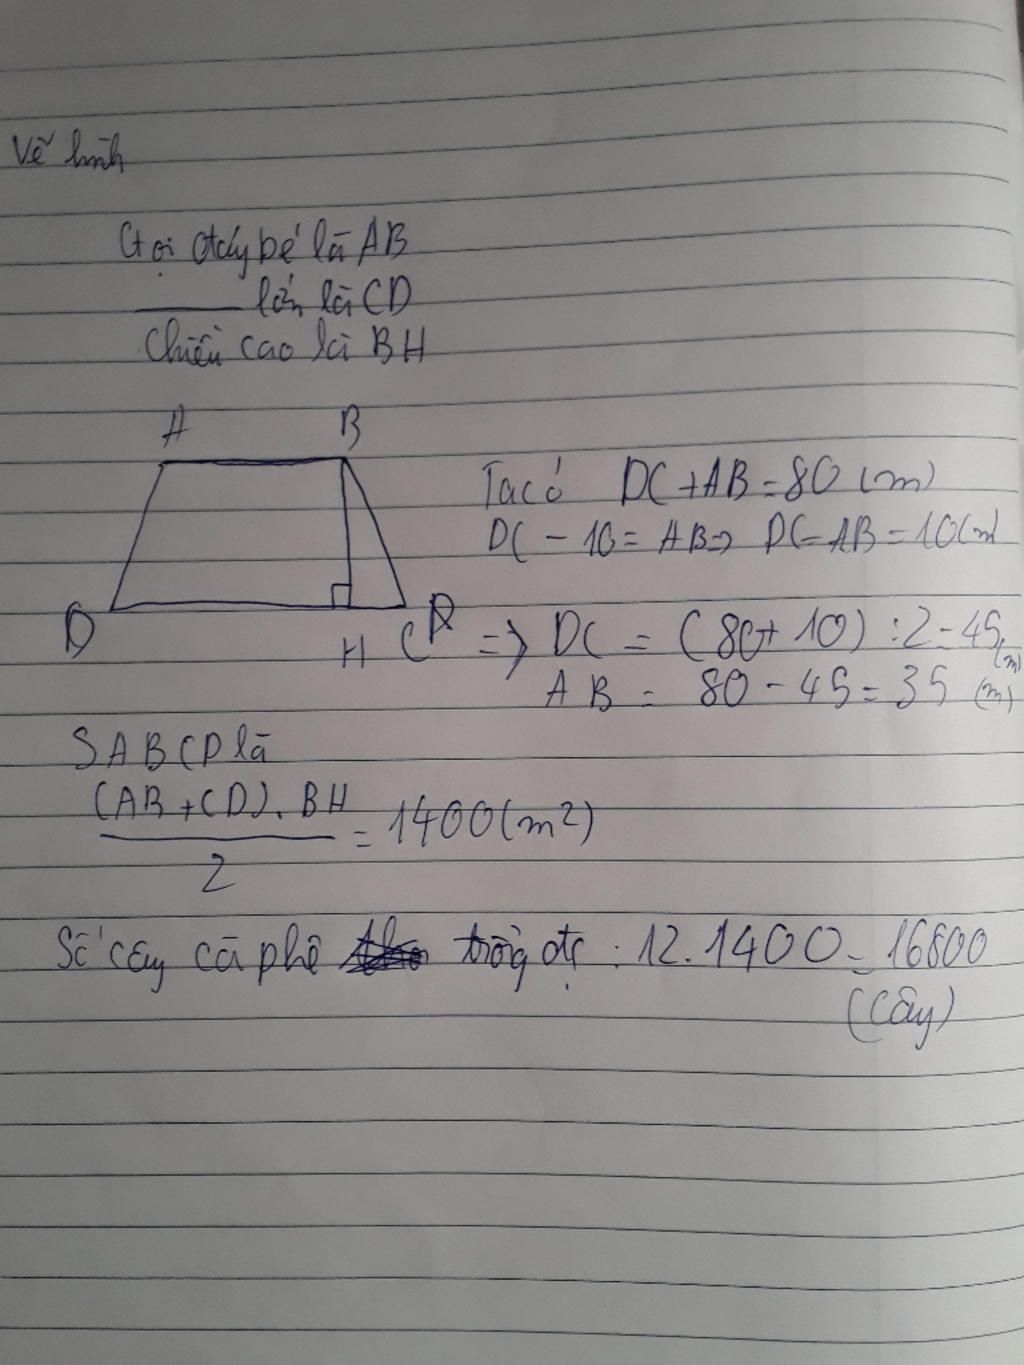 Vẽ hình
Gọi đáy bé là AB
______ lớn là CD
Chiều cao là BH
A B
Ta có DC + AB = 80 (m)
DC - 10 = AB => DC - AB = 10 (m)
D H C
=> DC = (80 + 10) : 2 = 45 (m)
AB = 80 - 45 = 35 (m)
SABCD là
(AB + CD) . BH
2
= 1400 (m²)
Số cây cà phê trồng đc : 12.1400 = 16800
(cây)